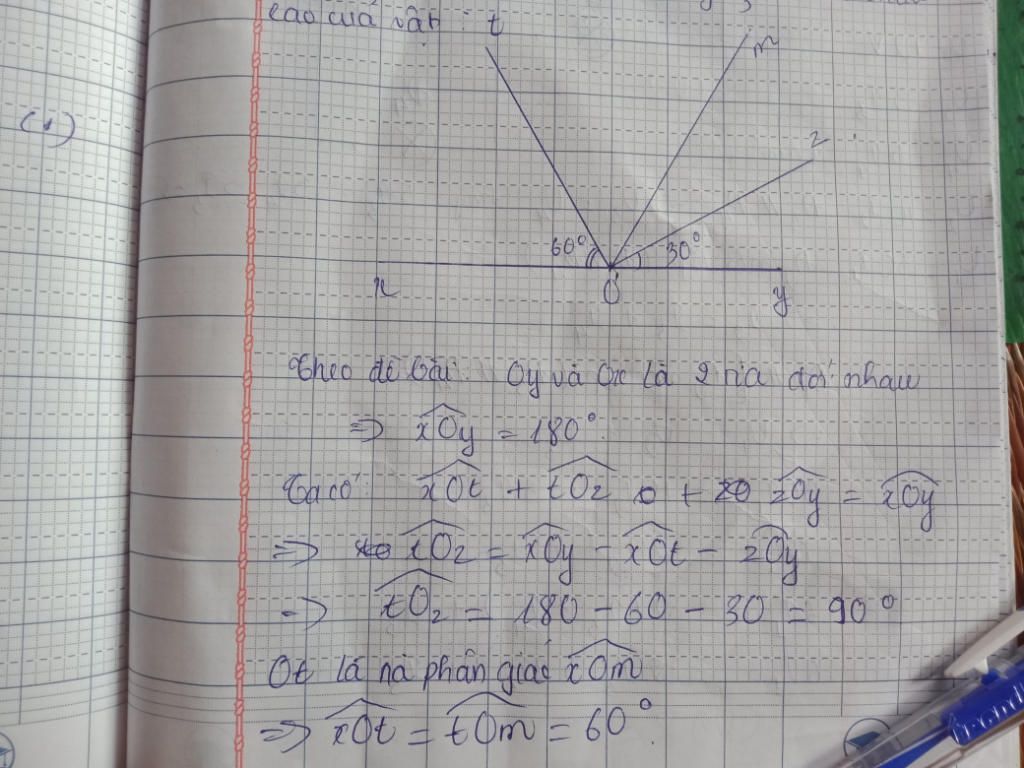 cao của vật : t
m
z
(1)
60° 30°
x O y
Theo đề bài: Oy và Ox là 2 tia đối nhau
=> xOy = 180°
Ta có: xOt + tOz + zOy = xOy
=> tOz = xOy - xOt - zOy
=> tOz = 180 - 60 - 30 = 90°
Ot là tia phân giác xOm
=> xOt = tOm = 60°